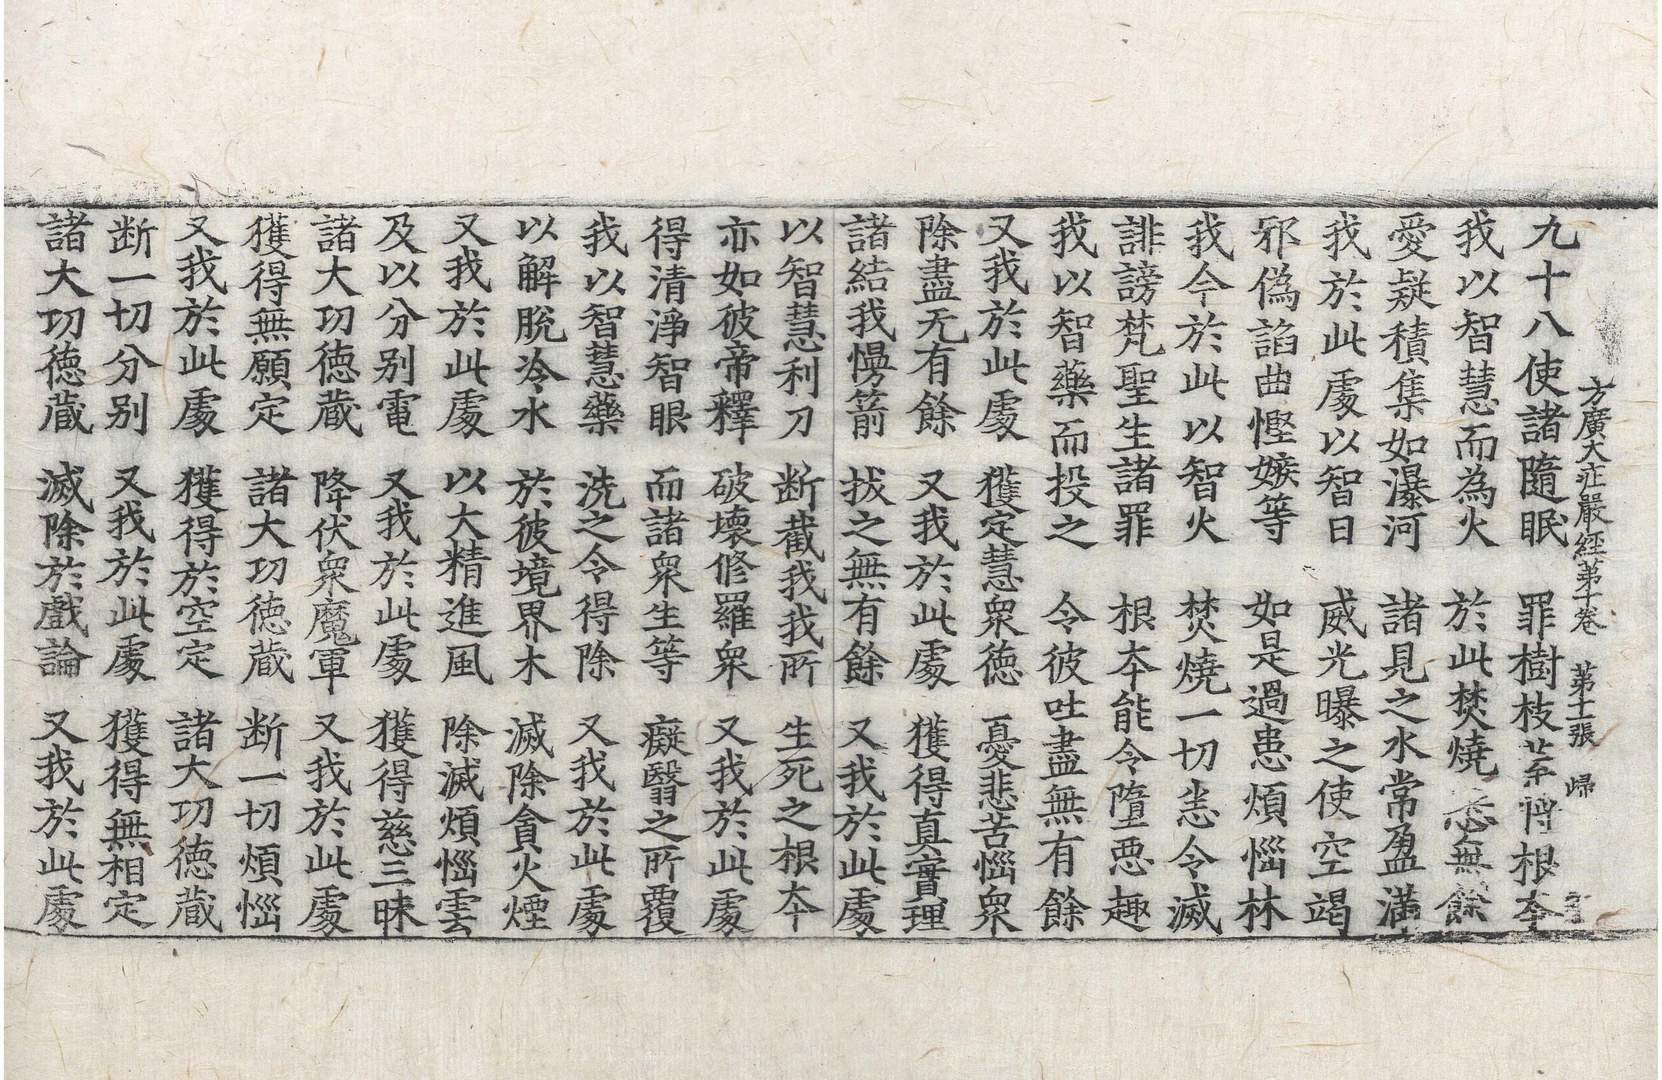 方廣大庄嚴經第十卷 第十張 歸
九十八使諸隨眠 罪樹枝 根本
我以智慧而為火 於此焚燒悉無餘
愛疑積集如瀑河 諸見之水常盈滿
我於此處以智日 威光曝之使空竭
邪偽諂曲慳嫉等 如是過患煩惱林
我今於此以智火 焚燒一切恙令滅
誹謗梵聖生諸罪 根本能令墮惡趣
我以智藥而投之 令彼吐盡無有餘
又我於此處 獲定慧衆徳 憂悲苦惱衆
除盡无有餘 又我於此處 獲得真實理
諸結我慢箭 拔之無有餘 又我於此處
以智慧利刀 断截我我所 生死之根本
亦如彼帝釋 破壞修羅衆 又我於此處
得清淨智眼 而諸衆生等 癡翳之所覆
我以智慧藥 洗之令得除 又我於此處
以解脫冷水 於彼境界木 滅除貪火煙
又我於此處 以大精進風 除滅煩惱雲
及以分别電 又我於此處 獲得慈三昧
諸大功徳蔵 降伏衆魔軍 又我於此處
獲得無願定 諸大功徳蔵 断一切煩惱
又我於此處 獲得於空定 諸大功徳蔵
断一切分别 又我於此處 獲得無相定
諸大功徳蔵 滅除於戲論 又我於此處